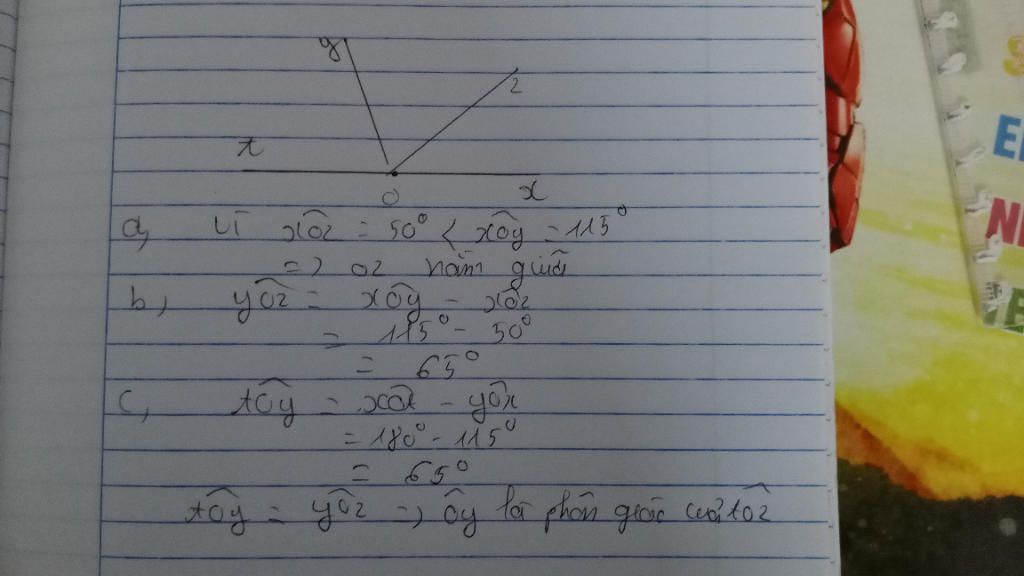 y
z
t
O
x
a, Vì xÔz = 50° < xÔy = 115°
=> Oz nằm giữa
b, yÔz = xÔy - xÔz
= 115° - 50°
= 65°
c, tÔy = xÔt - yÔx
= 180° - 115°
= 65°
tÔy = yÔz => Ôy là phân giác của tÔz